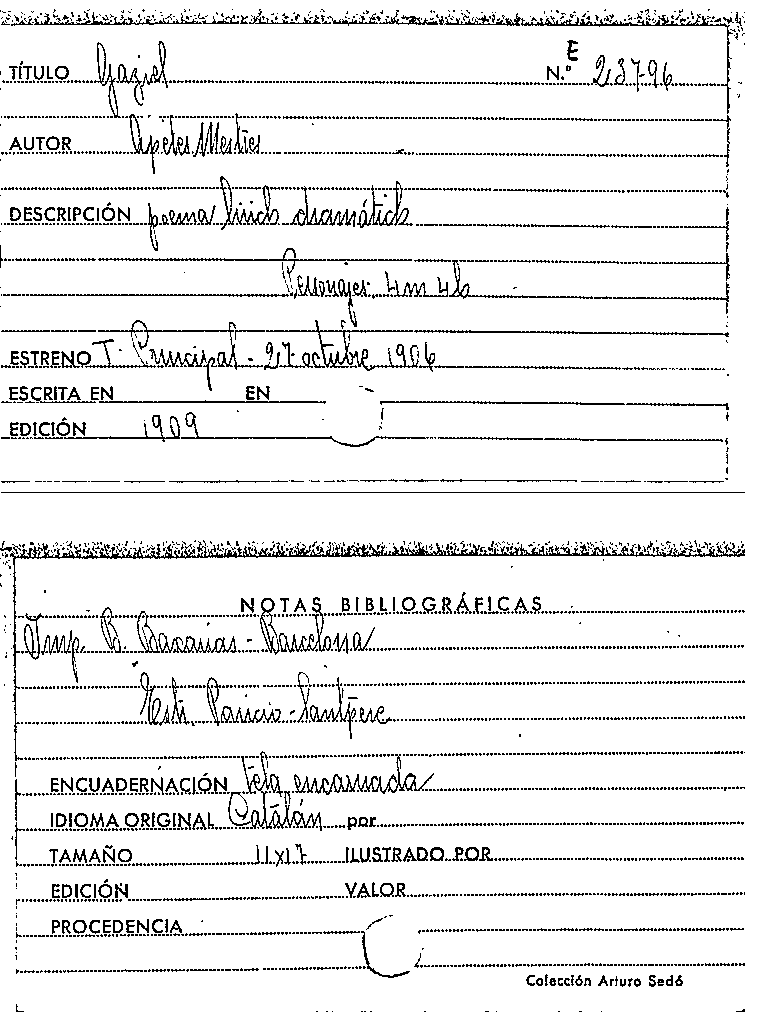 TÍTULO Gaziel N.º E 237-96
AUTOR Apeles Mestres
DESCRIPCIÓN poema lírich dramátich
Personajes: 4m 4h
ESTRENO T. Principal - 27 octubre 1906
ESCRITA EN EN
EDICIÓN 1909
NOTAS BIBLIOGRÁFICAS
Imp. B. Baxarias - Barcelona
Estr. Paricio - Santpere
ENCUADERNACIÓN tela encarnada
IDIOMA ORIGINAL Catalán por
TAMAÑO 11x17 ILUSTRADO POR
EDICIÓN VALOR
PROCEDENCIA
Colección Arturo Sedó